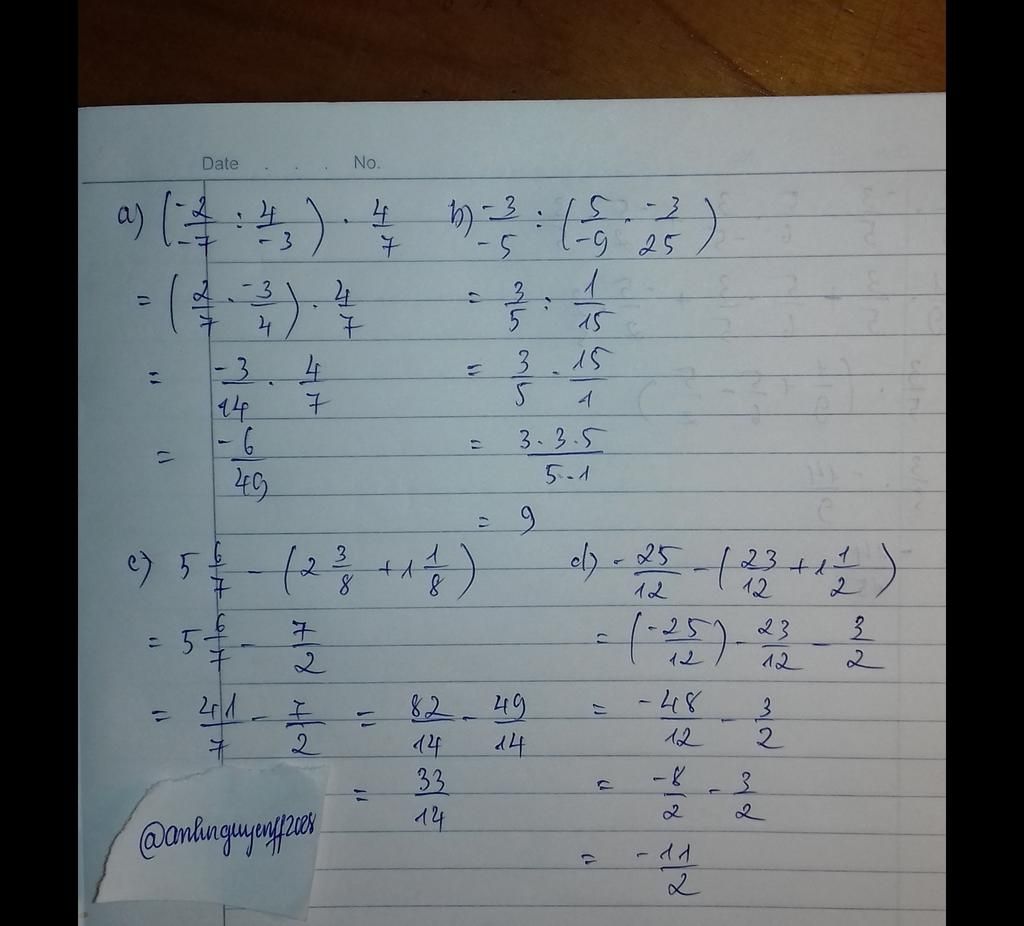 Date . . . No.
a) (-2/-7 : 4/-3) . 4/7
= (2/7 . -3/4) . 4/7
= -3/14 . 4/7
= -6/49
b) -3/-5 : (5/-9 . -3/25)
= 3/5 : 1/15
= 3/5 . 15/1
= 3.3.5/5.1
= 9
c) 5 6/7 - (2 3/8 + 1 1/8)
= 5 6/7 - 7/2
= 41/7 - 7/2 = 82/14 - 49/14
= 33/14
d) -25/12 - (23/12 + 1 1/2)
= (-25/12) - 23/12 - 3/2
= -48/12 - 3/2
= -8/2 - 3/2
= -11/2